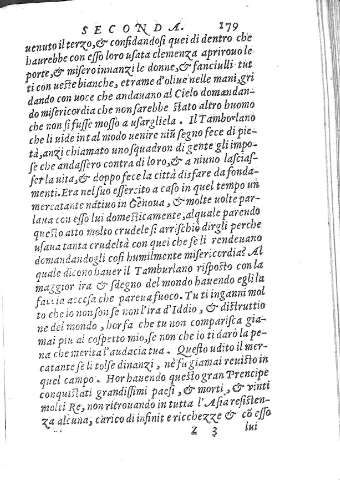 SECONDA. 179
uenuto il terzo, & confidandosi quei di dentro che
haurebbe con esso loro usata clemenza aprirono le
porte, & misero innanzi le donne, & fanciulli tut
ti con ueste bianche, et rame d'oliue nelle mani, gri
dando con uoce che andauano al Cielo domandan-
do misericordia che non sarebbe stato altro huomo
che non si fusse mosso a usargliela. Il Tamburlano
che li uide in tal modo uenire niũ segno fece di pie-
tà, anzi chiamato uno squadron di gente gli impo-
se che andassero contra di loro, & a niuno lasciaf-
ser la uita, & doppo fece la città disfare da fonda-
menti. Era nel suo essercito a caso in quel tempo un
mercatante natiuo in Genoua, & molte uolte par-
laua con esso lui domesticamente, al quale parendo
questo atto molto crudele si arrischiò dirgli perche
usaua tanta crudeltà con quei che se li rendeuano
domandandogli così humilmente misericordia? Al
quale dicono hauer il Tamburlano risposto con la
maggior ira & sdegno del mondo hauendo egli la
faccia accesa che pareua fuoco. Tu ti inganni mol
to che io non son se non l'ira d'Iddio, & distruttio
ne del mondo, hor fa che tu non comparisca gia-
mai piu al cospetto mio, se non che io ti darò la pe-
na che merita l'audacia tua. Questo udito il mer-
catante se li tolse dinanzi, nè fu giamai reuisto in
quel campo. Hor hauendo questo gran Prencipe
conquistati grandissimi paesi, & morti, & uinti
molti Re, non ritrouando in tutta l'Asia resisten-
za alcuna, carico di infinite ricchezze & cõ esso
Z 3 lui